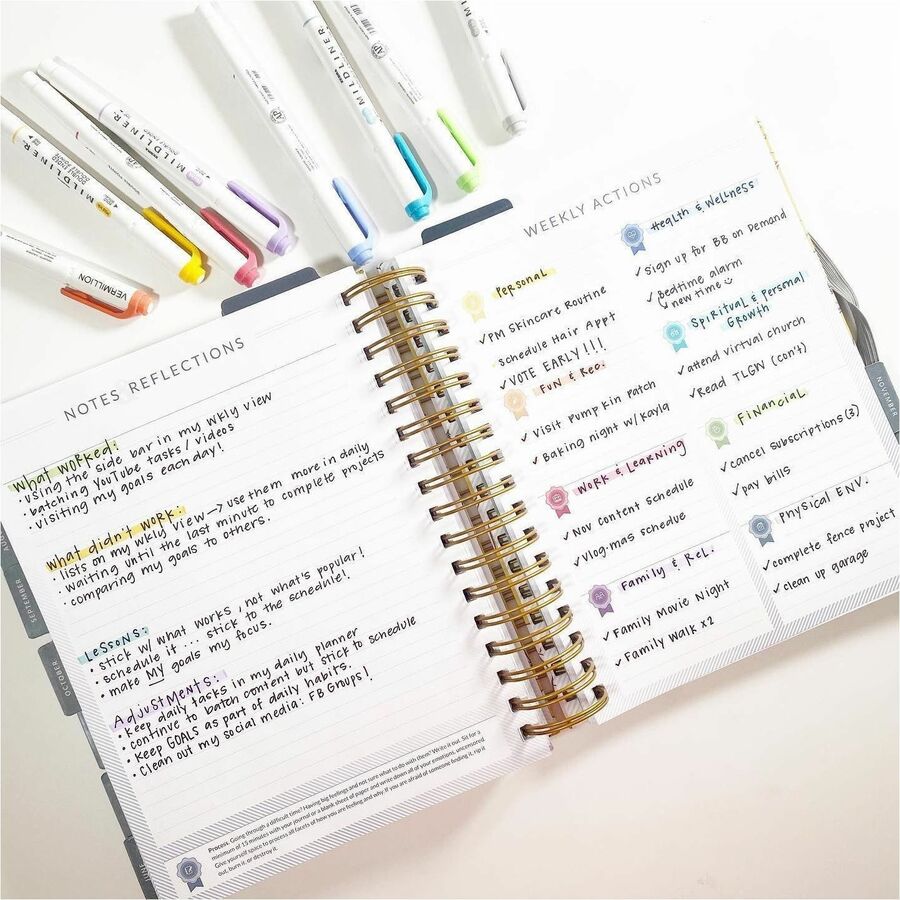 MILDLINER
DOUBLE ENDED
MILDLINER
MILDLINER
VERMILLION
NOTES REFLECTIONS
what worked:
• using the side bar in my wkly view
• batching YouTube tasks / videos
• visiting my goals each day!
what didn't work:
• lists on my wkly view → use them more in daily
• waiting until the last minute to complete projects
• comparing my goals to others.
Lessons:
• stick w/ what works, not what's popular!
• schedule it ... stick to the schedule!
• make MY goals my focus.
Adjustments:
• keep daily tasks in my daily planner
• continue to batch content but stick to schedule
• keep GOALS as part of daily habits.
• clean out my social media: FB Groups!
Process Going through a difficult time? Having big feelings and not sure what to do with them? Write it out. Sit for a
minimum of 15 minutes with your journal or a blank sheet of paper and write down all of your emotions, uncensored.
Give yourself space to process all facets of how you are feeling and why. If you are afraid of someone finding it, rip it
out, burn it, or destroy it.
SEPTEMBER
OCTOBER
JUNE
WEEKLY ACTIONS
Personal
✓ PM Skincare Routine
Schedule Hair Appt
✓ VOTE EARLY!!!
Fun & Rec.
✓ Visit Pumpkin Patch
✓ Baking night w/ Kayla
Work & Learning
✓ Nov content schedule
✓ Vlog-mas schedue
Family & Rel.
✓ Family Movie Night
✓ Family Walk x2
Health & Wellness
✓ Sign up for BB on Demand
✓ Bedtime alarm
↳ new time ☺
Spiritual & Personal
Growth
✓ attend virtual church
✓ Read TLGW (con't)
Financial
✓ cancel subscriptions (3)
✓ pay bills
Physical ENV.
✓ complete fence project
✓ clean up garage
NOVEMBER